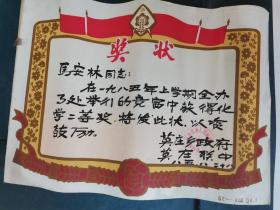 奖状
马安林同志：
在一九八五年上学期全办
了处举行的竞赛中获得化
学二等奖，特发此状，以资
鼓励。
英庄乡政府
英庄联中